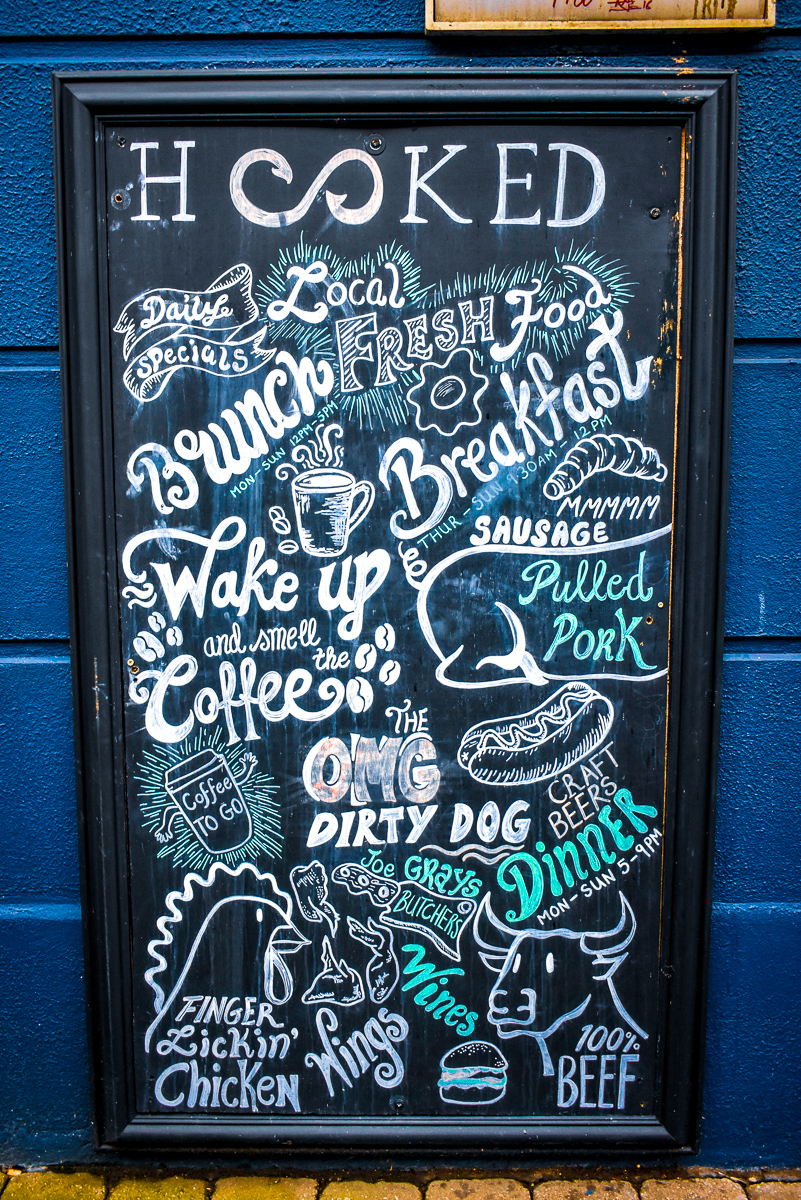 HOOKED
Daily
specials
Local
FRESH
Food
Brunch
MON-SUN 12PM-5PM
Breakfast
THUR-SUN 9:30AM-12PM
MMMMM
SAUSAGE
Wake up
and smell
the
Coffee
Pulled
PORK
Coffee
TO GO
THE
OMG
DIRTY DOG
CRAFT
BEERS
DINNER
MON-SUN 5-9PM
Joe GRAYS
BUTCHERS
FINGER
Lickin'
Chicken
Wings
Wines
100%
BEEF